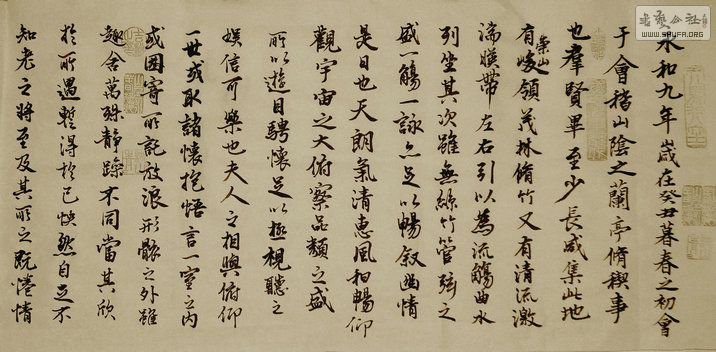 永和九年歲在癸丑暮春之初會
于會稽山陰之蘭亭脩稧事
也羣賢畢至少長咸集此地
有崇山峻領茂林脩竹又有清流激
湍暎帶左右引以為流觴曲水
列坐其次雖無絲竹管弦之
盛一觴一詠亦足以暢敘幽情
是日也天朗氣清惠風和暢仰
觀宇宙之大俯察品類之盛
所以遊目騁懷足以極視聽之
娛信可樂也夫人之相與俯仰
一世或取諸懷抱悟言一室之內
或因寄所託放浪形骸之外雖
趣舍萬殊靜躁不同當其欣
於所遇蹔得於己怏然自足不
知老之將至及其所之既惓情
書藝公社
WWW.SHUFA.ORG